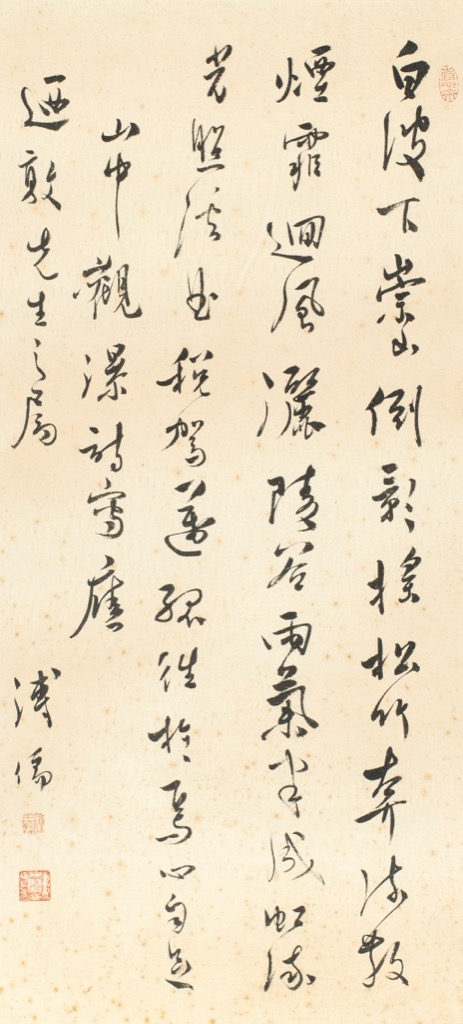 白波下崇山倒影搖松竹奔流散
煙霏迴風灑陵谷雨氣半成虹流
光照溪曲稅駕遂孤往於焉心自足
山中觀瀑詩寫應
迺敦先生之屬 溥儒